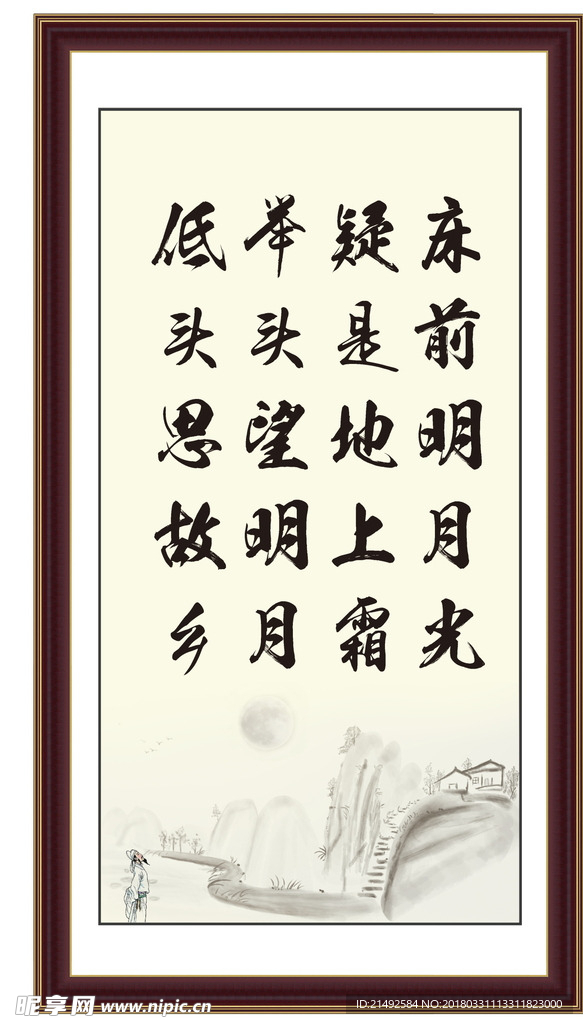 床前明月光
疑是地上霜
举头望明月
低头思故乡
昵享网 www.nipic.cn
ID:21492584 NO:20180331113311823000